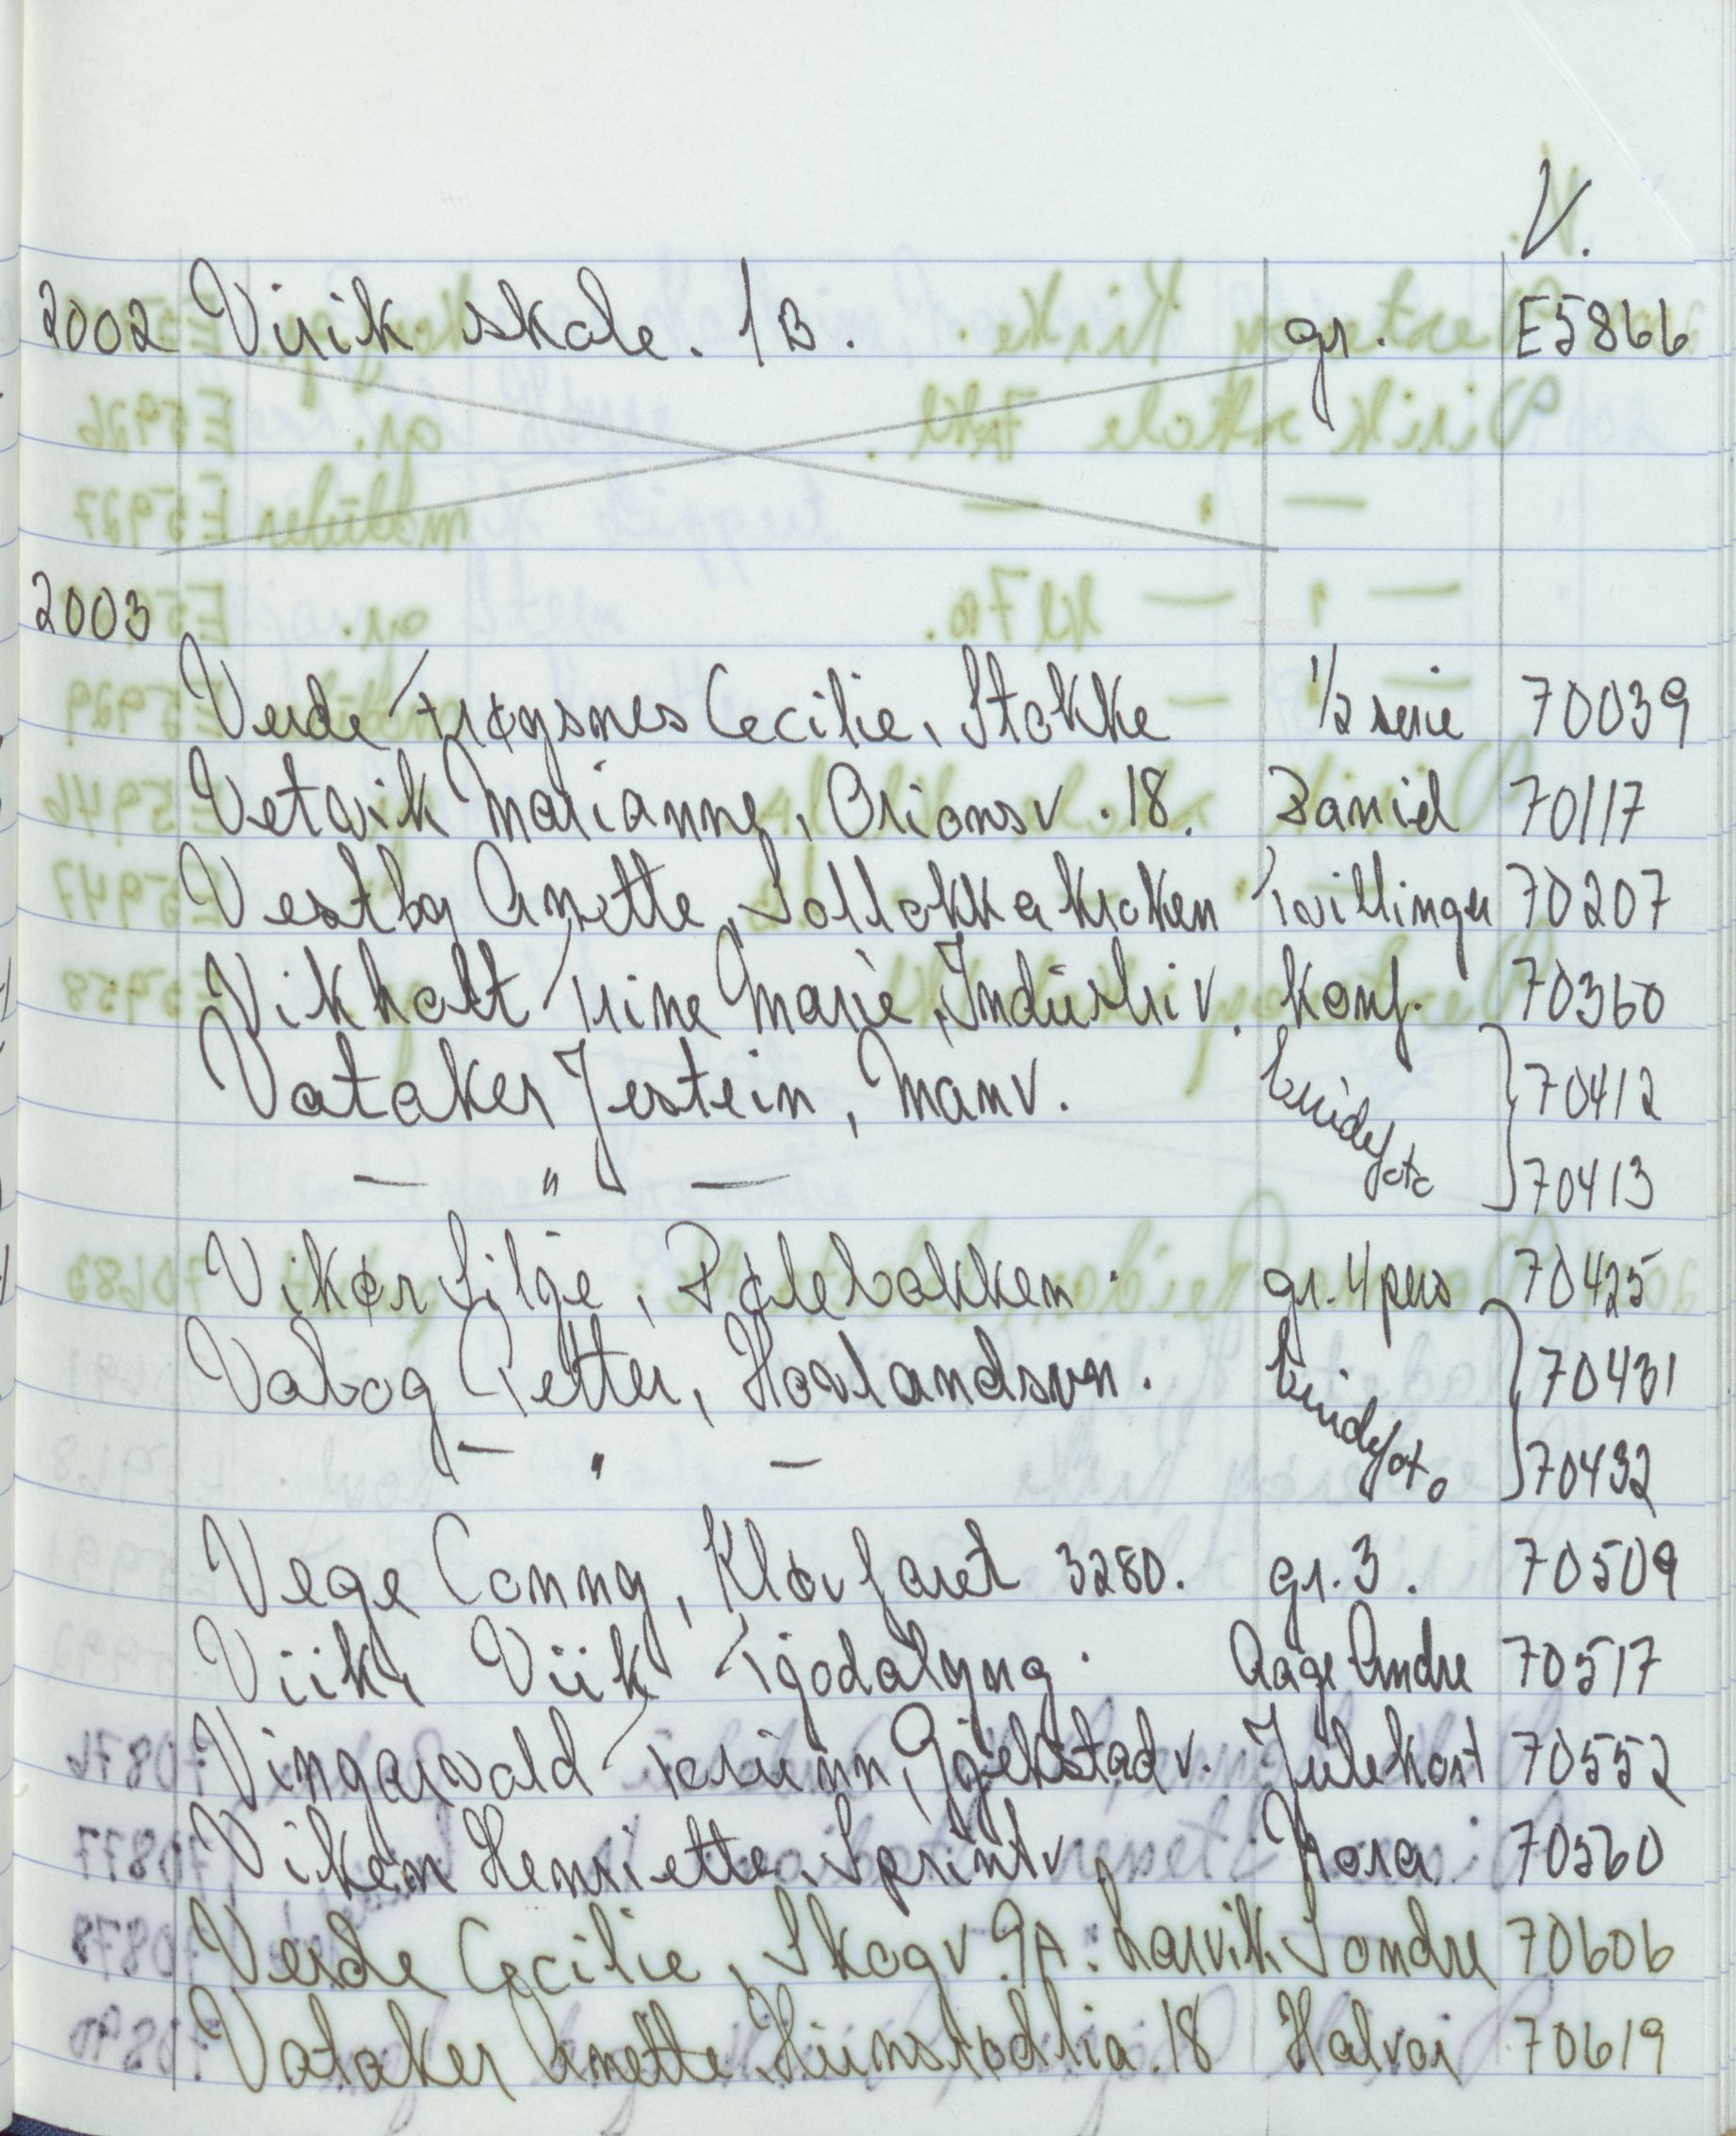 V.
2002 Virik skole. 1B. gr. E5866
2003
Verde Trøgsnes Cecilie, Stokke 1/2 serie 70039
Vetvik Marianne, Orionsv. 18. Daniel 70117
Vestby Anette, Solløkkakroken Tvillinger 70207
Vikholt Trine Marie, Industriv. konf. 70360
Vataker Jostein, Manv. brudefoto 70412
— " — 70413
Vikør Silje, Dølebakken. gr. 4 pers 70425
Valvog Petter, Hovlandsvn. brudefoto 70431
— " — 70432
Vege Conny, Kløvfaret 3280. gr. 3. 70509
Viik, Viik Tjodalyng. Aage Andre 70517
Vingarvold Torunn, Gjekstadv. Julekort 70552
Viken Henriette, Sprintv. Nora 70560
Verde Cecilie, Skogv. 9A. Larvik Sondre 70606
Vataker Anette, Hunstødlia. 18 Halvor 70619